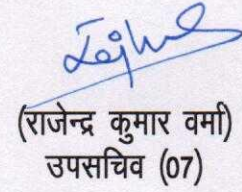 (राजेन्द्र कुमार वर्मा)
उपसचिव (07)